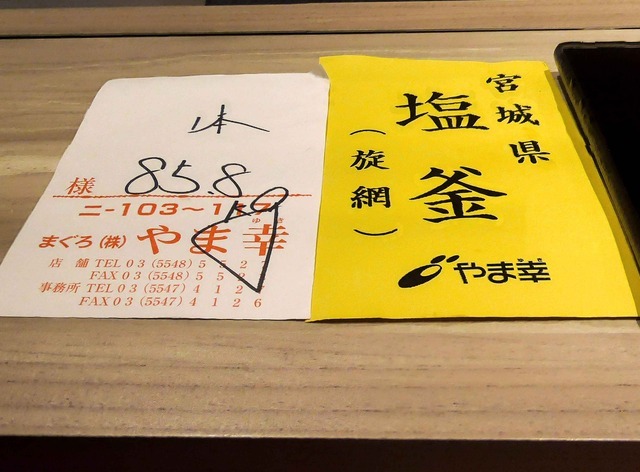 1本
様 85.8
ニ-103~1
まぐろ(株) やま幸
ゆき
店舗 TEL 03 (5548) 5 2
FAX 03 (5548) 5 5
事務所 TEL 03 (5547) 4 1 2
FAX 03 (5547) 4 1 2 6
宮城県
塩釜
(旋網)
やま幸